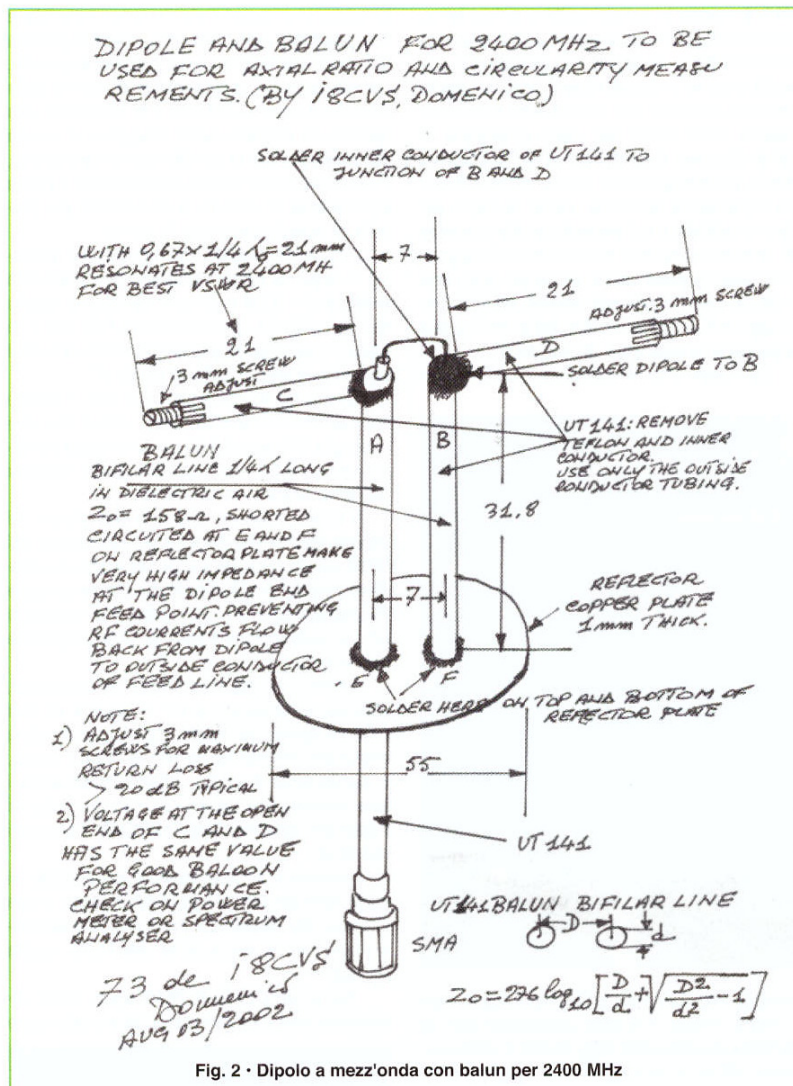 DIPOLE AND BALUN FOR 2400 MHz TO BE
USED FOR AXIAL RATIO AND CIRCULARITY MEASU
REMENTS. (BY i8CVS, DOMENICO)
SOLDER INNER CONDUCTOR OF UT141 TO
JUNCTION OF B AND D
WITH 0,67×1/4 λ=21 mm
RESONATES AT 2400 MH
FOR BEST VSWR
7
21
ADJUST. 3 mm SCREW
21
3 mm SCREW
ADJUST
C
D
SOLDER DIPOLE TO B
A
B
UT 141: REMOVE
TEFLON AND INNER
CONDUCTOR.
USE ONLY THE OUTSIDE
CONDUCTOR TUBING.
BALUN
BIFILAR LINE 1/4 λ LONG
IN DIELECTRIC AIR
Zo = 158 Ω, SHORTED
CIRCUITED AT E AND F
ON REFLECTOR PLATE MAKE
VERY HIGH IMPEDANCE
AT THE DIPOLE END
FEED POINT. PREVENTING
RF COURRENTS FLOW
BACK FROM DIPOLE
TO OUTSIDE CONDUCTOR
OF FEED LINE.
31,8
7
REFLECTOR
COPPER PLATE
1 mm THICK.
E
F
SOLDER HERE ON TOP AND BOTTOM OF
REFLECTOR PLATE
NOTE:
1) ADJUST 3 mm
SCREWS FOR MAXIMUM
RETURN LOSS
> 20 dB TYPICAL
2) VOLTAGE AT THE OPEN
END OF C AND D
HAS THE SAME VALUE
FOR GOOD BALOON
PERFORMANCE.
CHECK ON POWER
METER OR SPECTRUM
ANALYSER
55
UT 141
SMA
UT 141 BALUN BIFILAR LINE
D
d
Zo = 276 log10 [D/d + √(D2/d2 − 1)]
73 de i8CVS
Domenico
AUG 03/2002
Fig. 2 · Dipolo a mezz'onda con balun per 2400 MHz